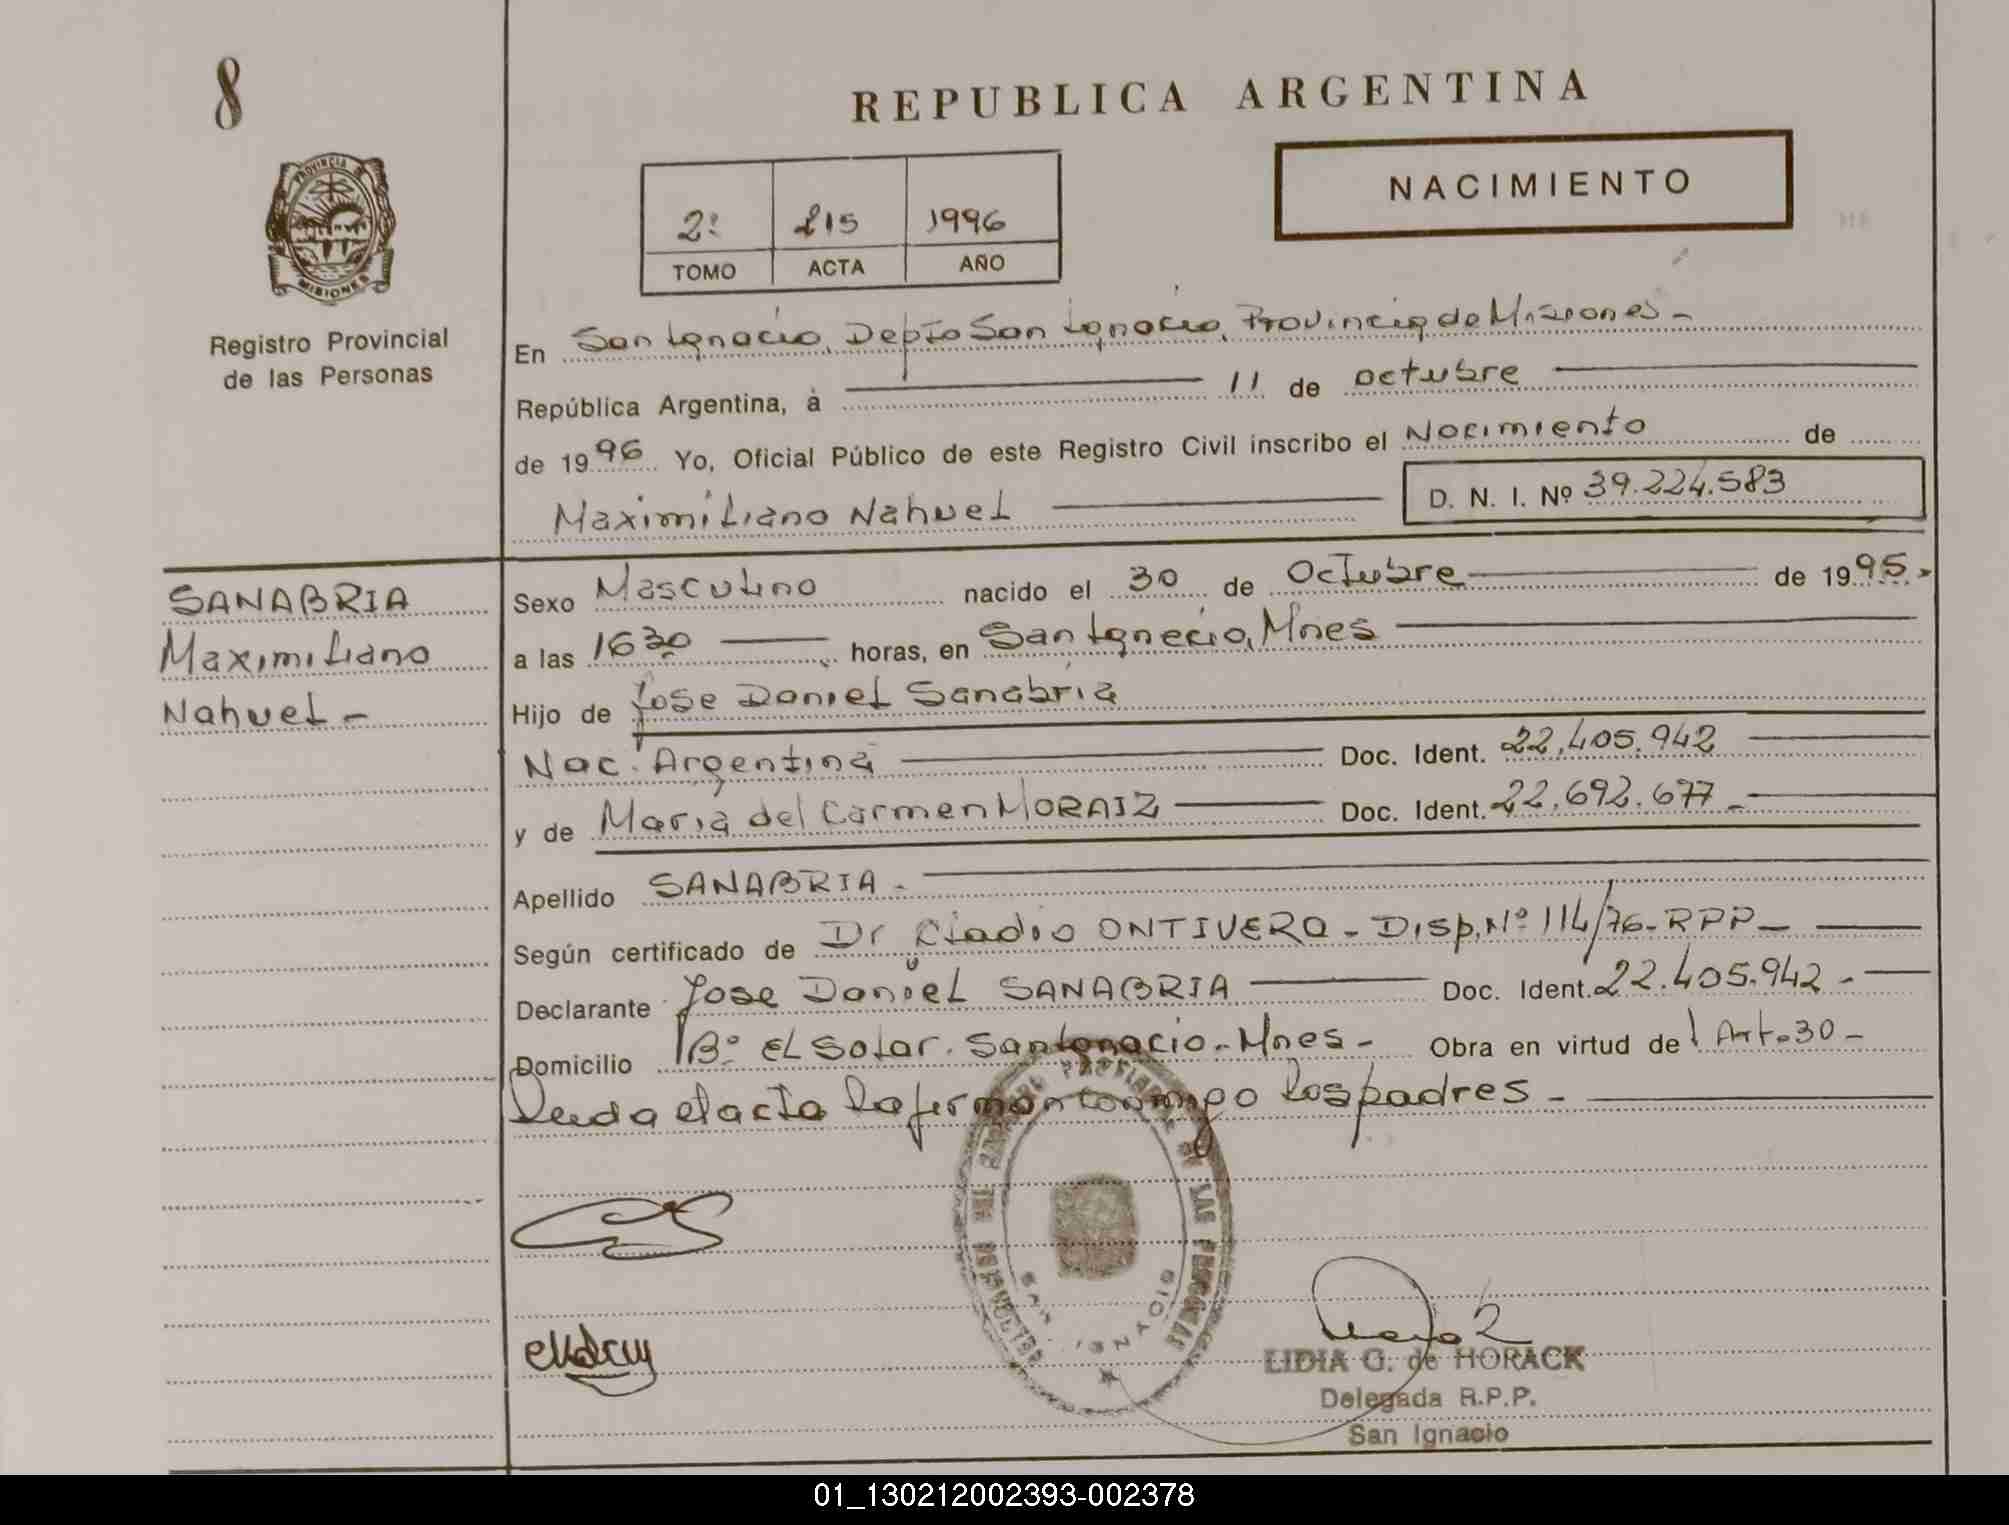 8
REPUBLICA ARGENTINA
NACIMIENTO
2º 215 1996
TOMO ACTA AÑO
PROVINCIA DE MISIONES
Registro Provincial
de las Personas
En San Ignacio, Depto San Ignacio, Provincia de Misiones -
República Argentina, à 11 de octubre
de 1996 Yo, Oficial Público de este Registro Civil inscribo el Nacimiento de
Maximiliano Nahuel D. N. I. Nº 39.224.583
SANABRIA
Maximiliano
Nahuel -
Sexo Masculino nacido el 30 de Octubre de 1995.
a las 16 30 horas, en San Ignacio, Mnes
Hijo de Jose Daniel Sanabria
Nac. Argentina Doc. Ident. 22.405.942
y de Maria del Carmen MORAIZ Doc. Ident. 22.692.677 -
Apellido SANABRIA -
Según certificado de Dr Cladio ONTIVERO - Disp. Nº 114/76 - RPP -
Declarante Jose Daniel SANABRIA Doc. Ident. 22.405.942 -
Domicilio Bº EL Solar. San Ignacio - Mnes - Obra en virtud de Art. 30 -
Leida el acta la firman conmigo los padres -
DE LAS PERSONAS
SAN IGNACIO
LIDIA G. de HORACK
Delegada R.P.P.
San Ignacio
01_130212002393-002378